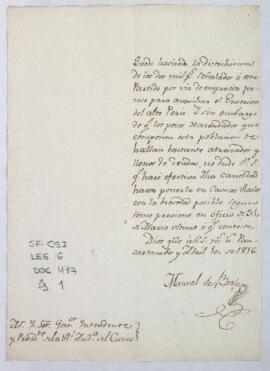 Quedo haciendo la distribucion
de los dos mil p.s señalados á este
Partido por via de emprestito
para auxiliar el Exercito
del alto Perú. Y sin embargo
de q.e los pocos Hacendados que
componen esta poblacion se
hallan bastante atrazados y
llenos de deudas, no dude V.S.
q.e haré efectiva dha cantidad
hasta ponerla en Caxas Reales
con la brevedad posible segun
como previene en oficio de 31
de Marzo ultimo á q.e contexto.
Dios gue á V.S. m.s a.s
Abril 1816
Manuel de
SF. CSI
LEG 6
DOC 417
fj 1
Intendente
del Cuzco